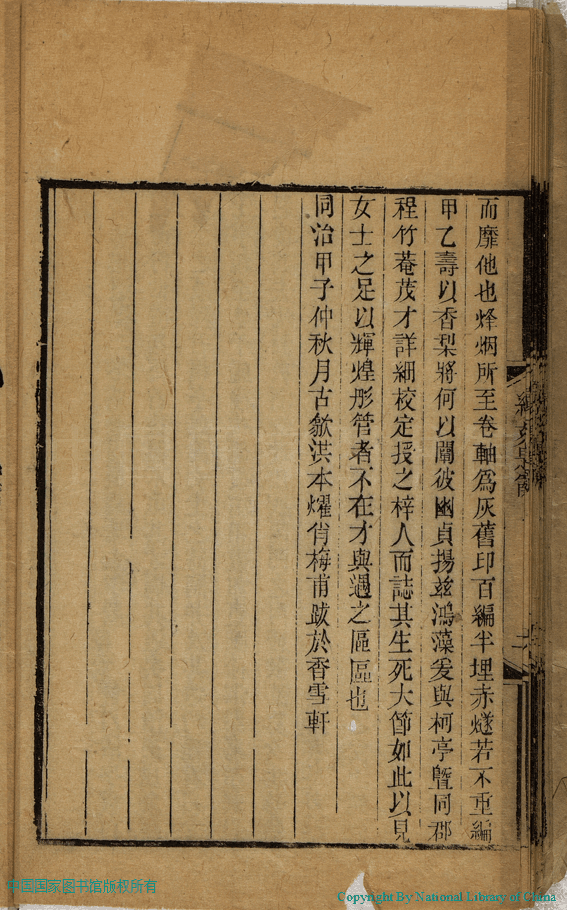 而靡他也烽烟所至卷軸爲灰舊印百編半埋赤燧若不重編
甲乙壽以香梨將何以闡彼幽貞揚兹鴻藻爰與柯亭曁同郡
程竹菴茂才詳細校定授之梓人而誌其生死大節如此以見
女士之足以輝煌彤管者不在才與遇之區區也
同治甲子仲秋月古歙洪本燿肖梅甫跋於香雪軒
中国国家图书馆版权所有
Copyright By National Library of China